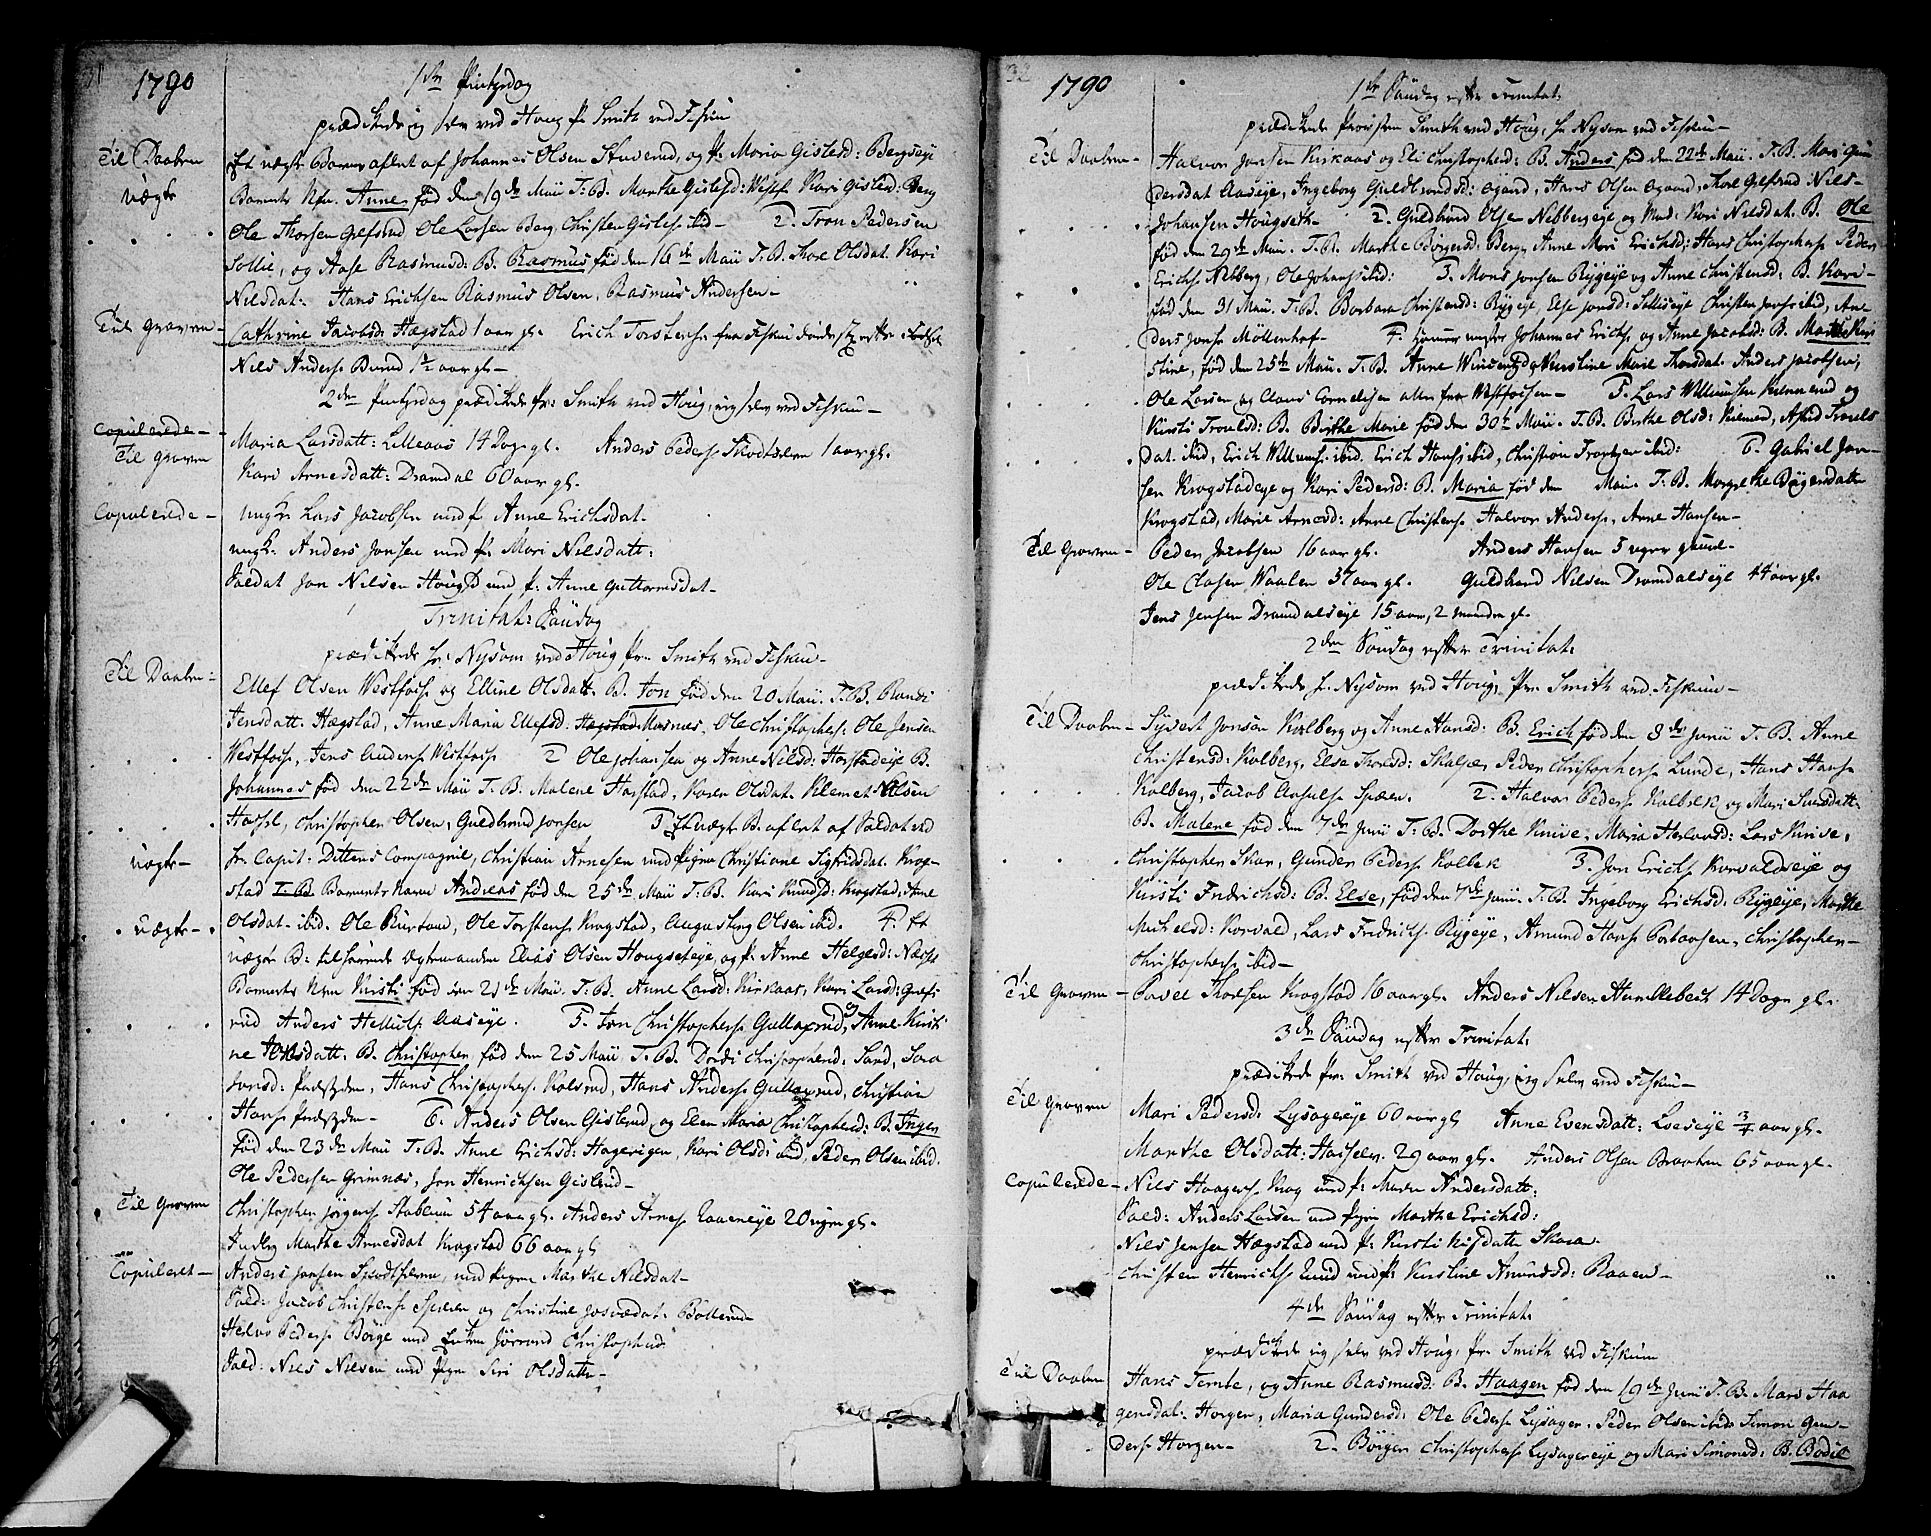 31
1790
1ste Pintzedag
prædikede jeg selv ved Houg hr. Smith ved Fiskum
Til Daaben
Et uægte Barn aflet af Johannes Olsen Stuverud, og p. Maria Gislesd: Bergseye
uægte
Barnets Nfn. Anne fød den 19de Maii T. B. Marthe Gislesd: Kari Gislesd: Berg
Ole Thorsen Ole Larsen Berg, Christen Gislesen ibid - 2. Tron Pedersen
Sollie, og Aase Rasmusd: B. Rasmus fød den 16de Maii T. B. Thore Olsdat. Kari
Nilsdat: Hans Erichsen Rasmus Olsen, Rasmus Andersen -
Til Graven -
Cathrine Jacobsd: Hægstad 1 aar gl. Erich Torstens. fra Fiskum
Nils Anders. Burud 1½ aar gl -
2den Pintzedag prædikede hr: Smith ved Houg, jeg selv ved Fiskum -
Copulerede -
Til Graven
Maria Larsdatt: Lilleaas 14 Dage gl. Anders Peders. Skodtselven 1 aar gl.
Kari Arnesdatt: Dramdal 60 aar gl.
Copulerede -
ungk. Lars Jacobsen med p. Anne Erichsdat.
ungk. Anders Jonsen med p. Mari Nilsdatt:
Soldat Jon Nilsen Houg med p. Anne Guttormsdat -
Trinitat: Søndag
prædikede hr: Nysom ved Houg hr. Smith ved Fiskum -
Til Daaben -
Ellef Olsen Westfos. og Elline Olsdatt. B. Jon fød den 20 Maii. T. B. Randi
Jensdatt. Hægstad, Anne Maria Ellefsd. Hægstad Masmus, Ole Christophers. Ole Jensen
Westfos., Jens Anders. Westfos. 2 Ole Johansen og Anne Nilsd: Harstadeye B.
Johannes fød den 22de Maii T. B. Malene Harstad, Karen Olsdat. Klemet Nilsen
Hassel, Christopher Olsen, Guldbrand Jonsen 3 Et uægte B. aflet af Soldat ved
uægte -
hr. Capit: Dittens Compagnie, Christian Arnesen med Pigen Christiane Sigfridsdat. Krog-
stad T. B. Barnets Navn Andreas fød den 25de Maii T. B. Kari Knudsd: Krogstad, Anne
Olsdat. ibid. Ole Burtand, Ole Torstens. Krogstad, Augustinj Olsen ibid. 4. Et
uægte -
uægte B. tilhørende Ægtemanden Elias Olsen Hougseteye, og p. Anne Helgesd:
Barnets Nfn Kirsti fød den 21de Maii. T. B. Anne Larsd: Kirkaas, Kari Larsd:
rud Anders Hellies. Aaseye. 5. Jon Christophers. Gullaxrud, og Anne Kirsti
ne Jensdatt: B. Christopher, fød den 25 Maii T. B. Dordi Christopherd: Sand, Sara
Jonsd: Præstegden, Hans Christophers. Kolsrud, Hans Anders. Gullaxrud, Christian
Hans. Præstegden - 6. Anders Olsen Gislerud og Elen Maria Christopherd: B. Inger
fød den 23de Maii T. B. Anne Erichsd: Hagerigen, Kari Olsd: ibid, Peder Olsen ibid.
Ole Pedersen Grimnæs, Jon Henrichsen Gislerud -
Til Graven
Christopher Jørgens. Stablum 54 aar gl. Anders Arnes. Raaeneye 20 uger gl.
Indlg Marthe Arnesdat Krogstad 66 aar gl
Copuleret -
Anders Jonsen Skodtselven, med Pigen Marthe Nilsdat -
Sold: Jacob Christens. Spæren og Christine Josvædat. Bollerud -
Helvo Peders. Børge med Enken Jørrand Christophersd:
Sold: Nils Nilsen med Pigen Siri Olsdatt -
32
1790
1ste Søndag efter Trinitat:
prædikede Provsten Smith ved Houg, hr Nysom ved Fiskum -
Til Daaben -
Halvor Jonsen Kirkaas og Eli Christopherd: B. Anders fød den 22de Maii. T. B. Mari Gun
dersdat Aaseye, Ingeborg Guldbrandsd: Øgaard, Hans Olsen Øgaard, Thore Nils -
Johansen Hougseth - 2. Guldbrand Olsen Nebbergeye og Mad: Kari Nilsdat. B. Ole
fød den 29de Maii. T. B. Marthe Børgersd: Berg, Anne Mari Erichsd: Hans Christophers. Peder
Erichs. Nebberg, Ole Johans. ibid: 3. Mons Jonsen Rygeye og Anne Christensd: B. Kari -
fød den 31 Maii. T. B. Barbara Christensd: Rygeye, Else Jonsd: Selliseye Christen Jons. ibid, An-
ders Jons. Møllenhof - 4. Johannes Erichs. og Anne Jacobsd: B. Marthe Kir
stine, fød den 25de Maii. T. B. Anne Wincentzd, Kirstine Marie Thorsdat. Anders Jacobsen,
Ole Larsen og Claus Cornelisen alle fra Westfossen - 5. Lars Willumsen Kinnerud og
Kirsti Trovelsd: B. Birthe Marie fød den 30te Maii. T. B. Birthe Olsd: Kinnerud, Assid Trovels
dat. ibid, Erich Willums. ibid. Erich Hans. ibid, Christian ibid: 6. Gabriel Jon-
sen Krogstadeye og Kari Pedersd: B. Maria fød den Maii. T. B. Margrethe Bøgersdatt
Krogstad, Marie Arnesd: Anne Christens. Halvor Anders. Arne Hansen -
Til Graven -
Peder Jacobsen 16 aar gl. Anders Hansen 5 uger gamel -
Ole Clasen Waalen 37 aar gl. Guldbrand Nilsen Dramdalseye 44 aar gl.
Jens Jensen Dramdalseye 15 aar, 2 maander gl.
2den Søndag efter Trinitat:
prædikede hr Nysom ved Houg, hr. Smith ved Fiskum -
Til Daaben -
Syvert Jonsen Kolberg og Anne Hansd: B. Erich fød den 8de Junii T. B. Anne
Christensd: Kolberg, Else Thoresd: Skalsp, Peder Christophers. Lunde, Hans Hans.
Kolberg, Jacob Anfuls. Spæren. 2. Halvor Peders. Kolbek og Mari Simesdatt:
B. Malene fød den 7de Junii T. B. Dorthe Knive, Maria Helvorsd: Lars Knive,
Christopher Skar, Gunder Peders. Kolbek 3. Jon Erichs. Korvaldseye og
Kirsti Fridrichsd: B. Else, fød den 7de Junii. T. B. Ingeborg Erichsd: Rygeye, Marthe
Michelsd: Korvald, Lars Fridrichs. Rygeye, Amund Hans. Portaasen, Christopher -
Christophers. ibid -
Til Graven -
Povel Thoresen Krogstad 16 aar gl. Anders Nilsen Humlebæk 14 Dage gl.
3de Søndag efter Trinitat:
prædikede hr. Smith ved Houg, jeg selv ved Fiskum -
Til Graven
Mari Pedersd: Lysagereye 60 aar gl. Anne Evensdatt: Loeseye 3/4 aar gl.
Marthe Olsdatt: Hasselv. 29 aar gl. Anders Olsen Braaten 65 aar gl.
Copulerede -
Nils Haagens. Krog med p. Maren Andersdatt:
Sold: Anders Larsen med Pigen Marthe Erichsd:
Nils Jensen Hægstad med p. Kirsti Nilsdatt Skara.
Christen Henrichs. Lund med p. Kirstine Amundsd: Raaen -
4de Søndag efter Trinitat:
prædikede jeg selv ved Houg, hr. Smith ved Fiskum
Til Daaben
Hans Temte, og Anne Rasmusd: B. Haagen fød den 19de Junii T. B. Mari Haa
gensdat: Horgen, Maria Gundersd: Ole Peders. Lysager, Peder Olsen ibid Simon Gun-
ders. Horgen - 2. Børger Christophers. Lysagereye og Mari Simonsd: B. Bodil